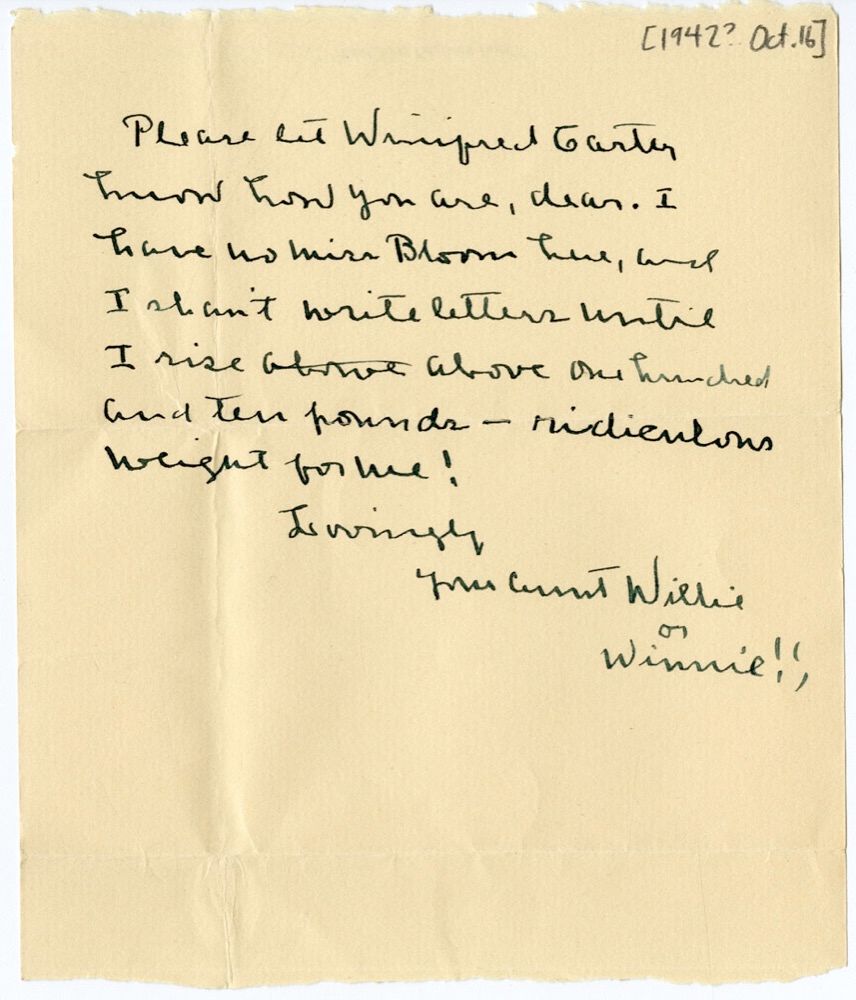 [1942? Oct. 16]
Please let Winifred Carter
know how you are, dear. I
have no Miss Bloom here, and
I shan't write letters until
I rise above above one hundred
and ten pounds — ridiculous
weight for me!
Lovingly
Your aunt Willie
or
Winnie!!,